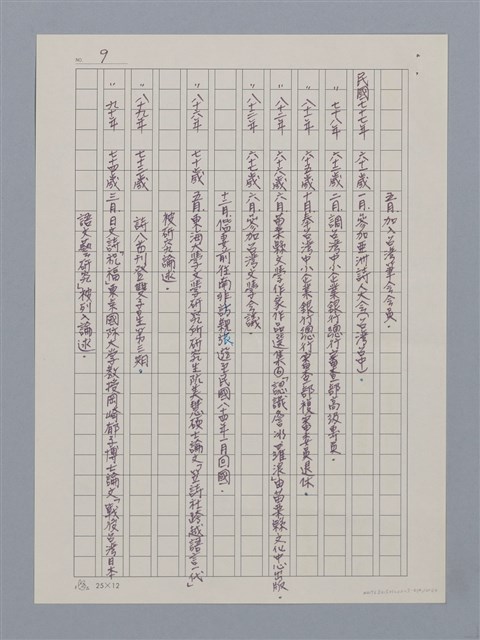 9
五月加入台灣筆會會員。
民國七十七年 六十一歲 一月參加亞洲詩人大會(台灣台中)。
〃 七十八年 六十二歲 二月調台灣中小企業銀行總行審查部高級專員。
〃 八十一年 六十五歲 十月奉台灣中小企業銀行總行審查部複審委員退休。
〃 八十二年 六十六歲 六月苗栗縣文學作家作品選集④「認識詹冰、羅浪」由苗栗縣文化中心出版。
〃 八十三年 六十七歲 六月參加台灣文學會議。
十二月偕妻前往南非訪親旅遊至民國八十四年一月回國。
〃 八十六年 七十歲 五月東海大學文學研究所研究生阮美慧碩士論文「笠詩社跨越語言一代」
被研究論述。
〃 八十九年 七十三歲 詩八首刊登雙子星第三期。
〃 九十年 七十四歲 三月日文詩「祝福」東吳國際大學教授岡崎郁子博士論文「戰後台灣日本
語文藝研究」被列入論述。
25×12